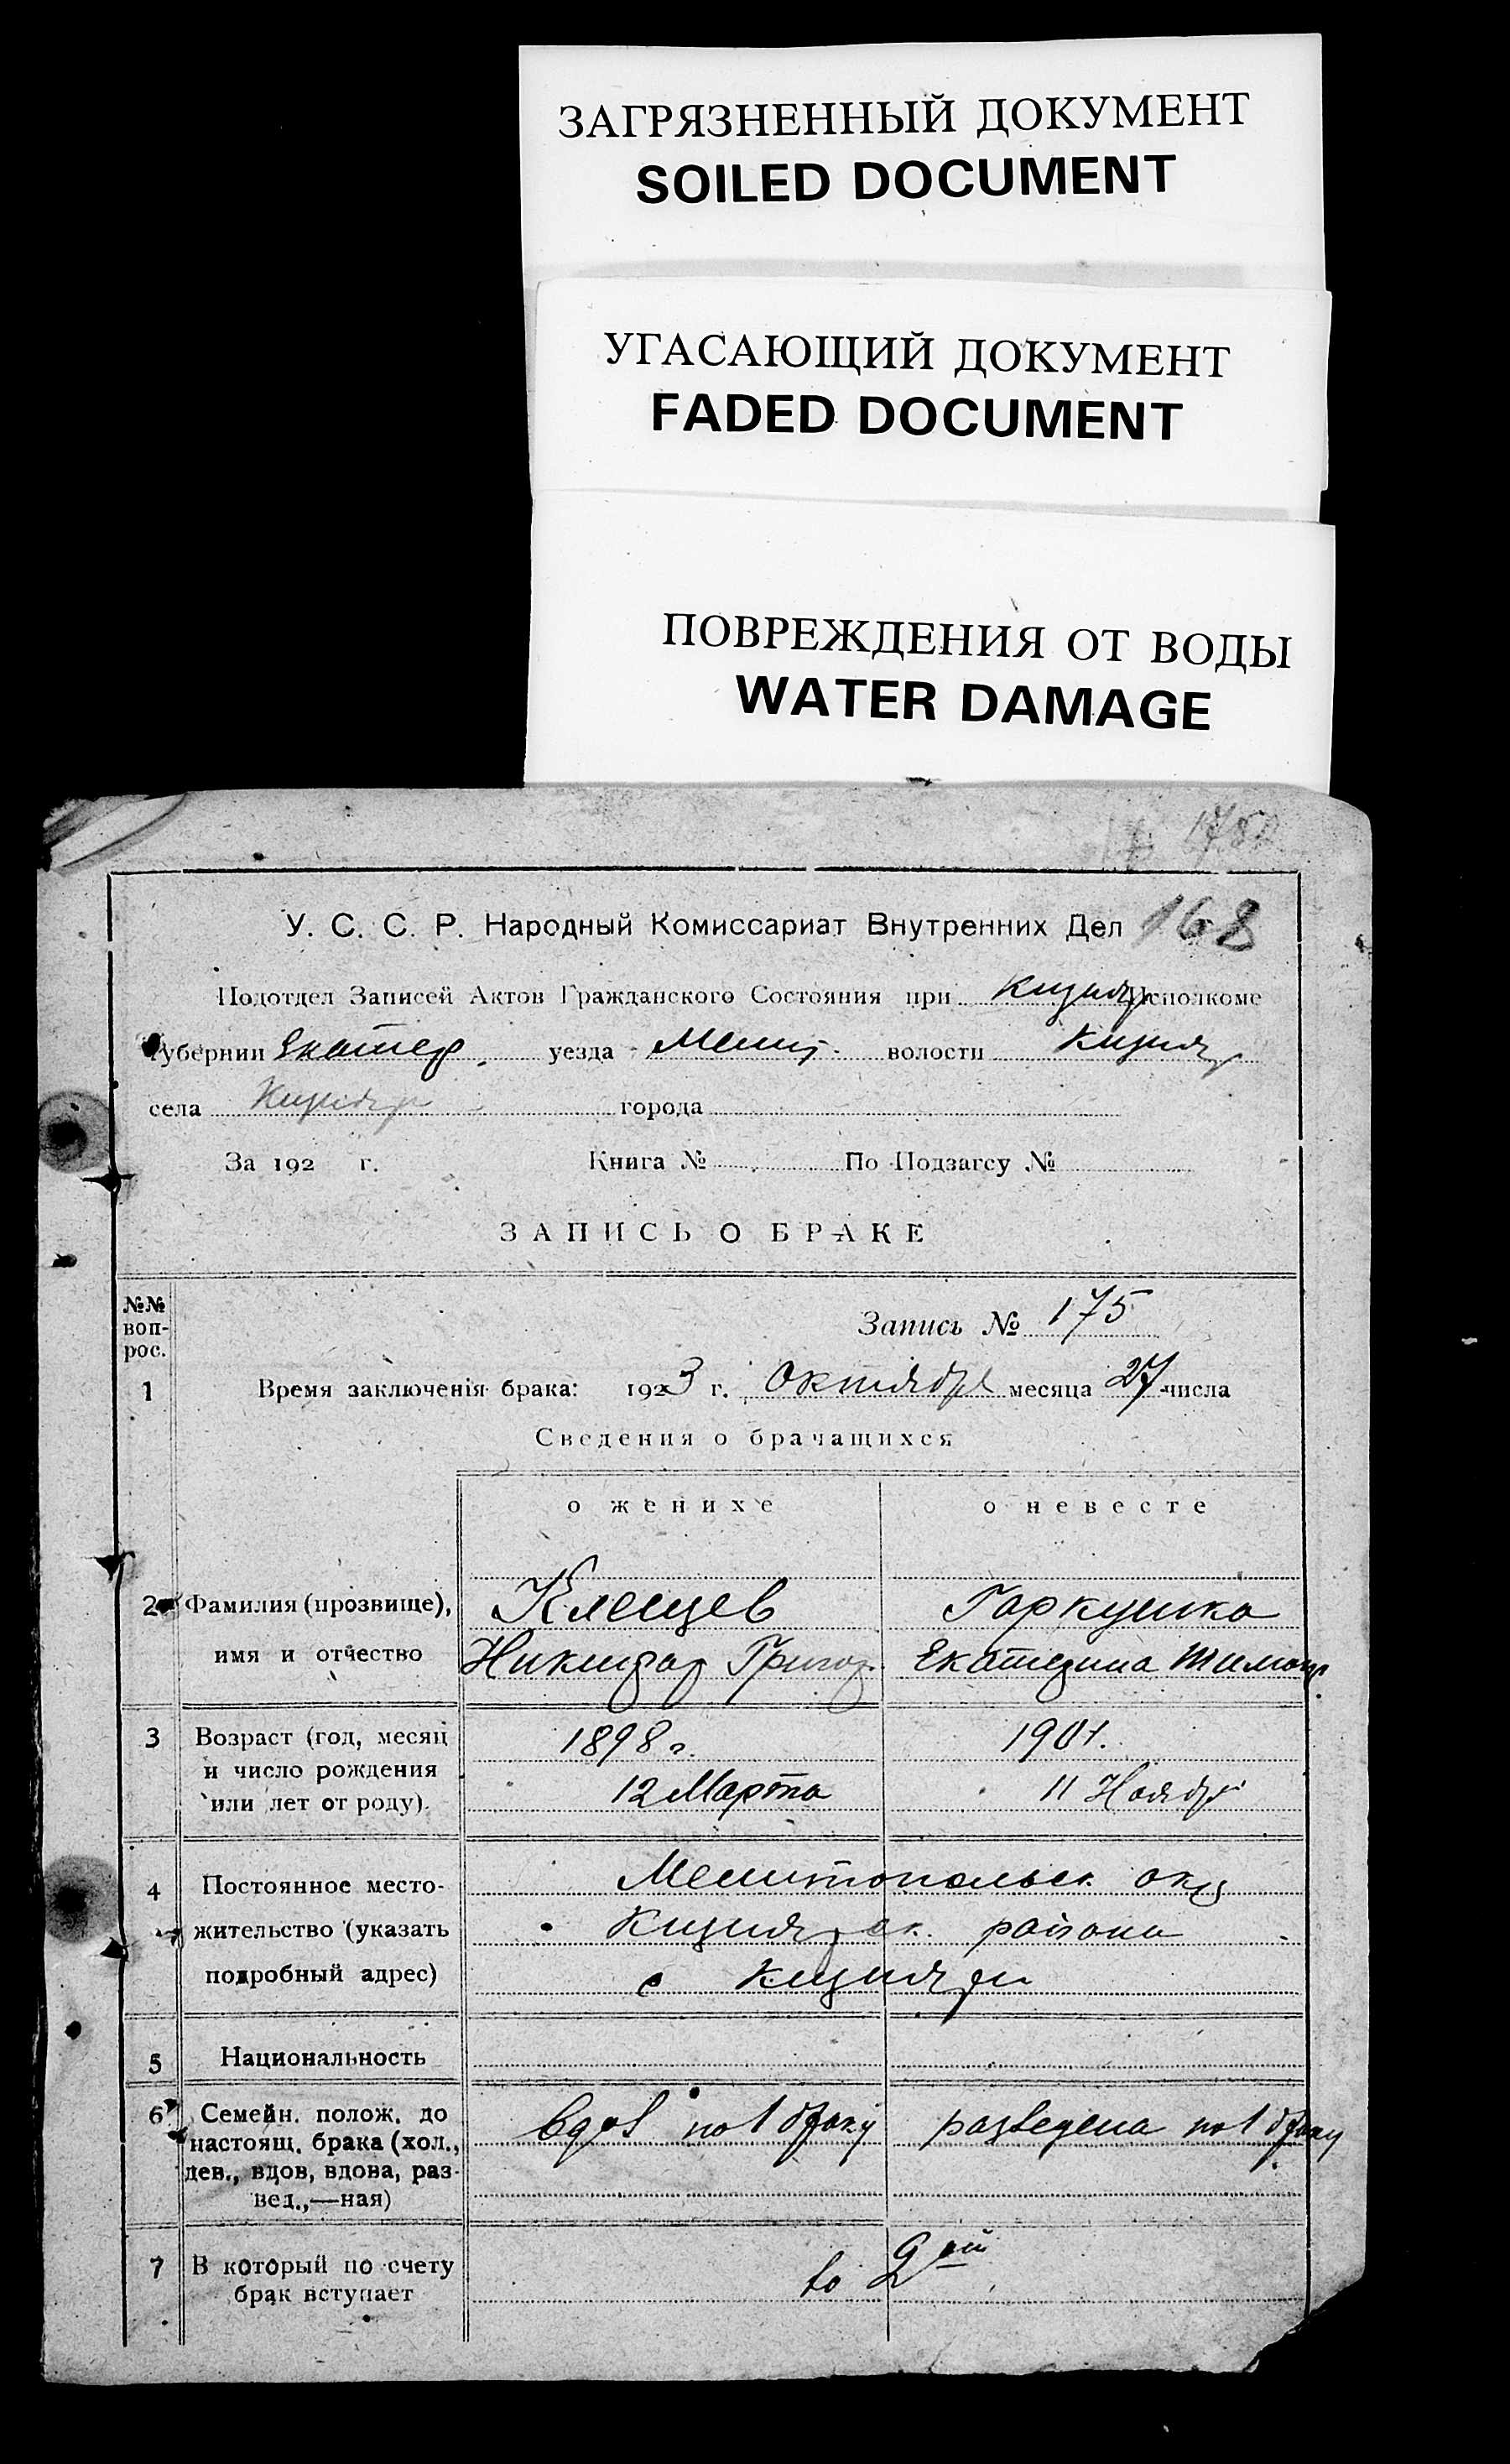 ЗАГРЯЗНЕННЫЙ ДОКУМЕНТ
SOILED DOCUMENT
УГАСАЮЩИЙ ДОКУМЕНТ
FADED DOCUMENT
ПОВРЕЖДЕНИЯ ОТ ВОДЫ
WATER DAMAGE
У. С. С. Р. Народный Комиссариат Внутренних Дел 168
Подотдел Записей Актов Гражданского Состояния при Кизияр Исполкоме
Губернии Екатер. уезда Мелит. волости Кизияр
села Кизияр города
За 192 г. Книга № По Подзагсу №
ЗАПИСЬ О БРАКЕ
№№ воп-рос.
Запись № 175
1 Время заключенія брака: 1923 г. Октября месяца 27 числа
Сведения о брачащихся
о женихе о невесте
2 Фамилия (прозвище), Клещев Гаркушка
имя и отчество Никифор Григор. Екатерина Тимоф
3 Возраст (год, месяц 1898 г. 1901.
и число рождения 12 Марта 11 Ноябр
или лет от роду).
4 Постоянное место- Мелитопольск. окр
жительство (указать Кизиярск. района
подробный адрес) с Кизияри
5 Национальность
6 Семейн. полож. до вдов по 1 браку разведена по 1 браку
настоящ. брака (хол.,
дев., вдов, вдова, раз-
вед.,—ная)
7 В который по счету во 2ой
брак вступает